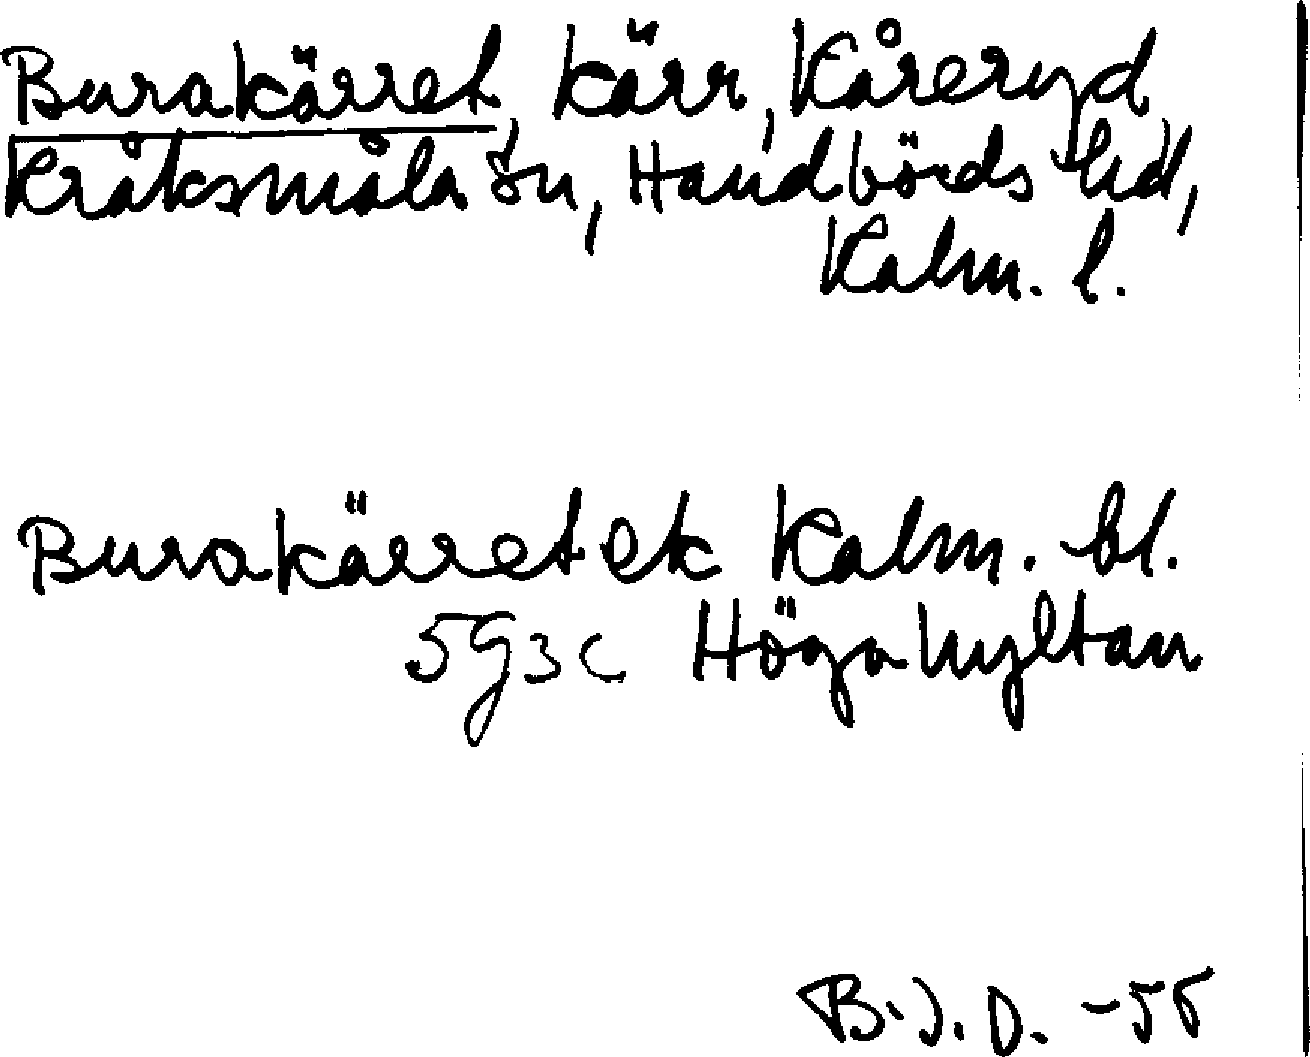 Burakärret, kärr, Kåreryd
Kråksmåla sn, Handbörds hd,
Kalm. l.
Burakärret ek Kalm. bl.
5g3c Högahyltan
B.J.O. -55